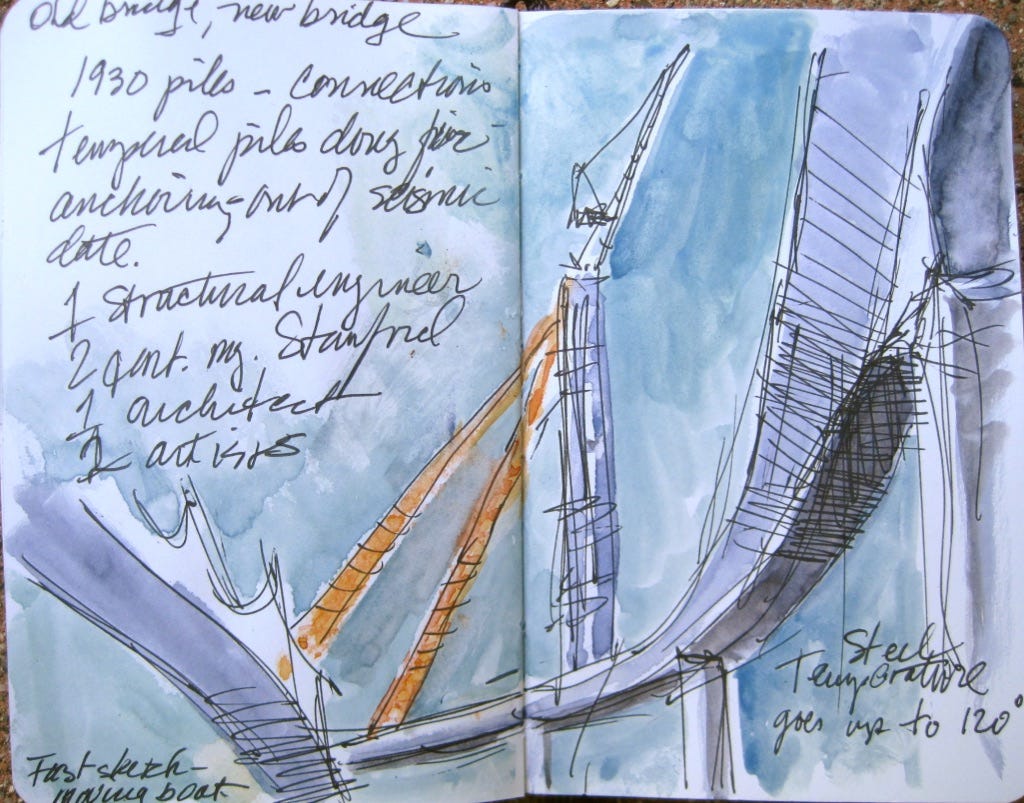 Old bridge, new bridge
1930 piles - connections
piles
anchoring - out of seismic
date.
1 structural engineer
2 Stanford
1 architect
2 artists
Fast sketch -
moving boat
Steel
Temperature
goes up to 120°